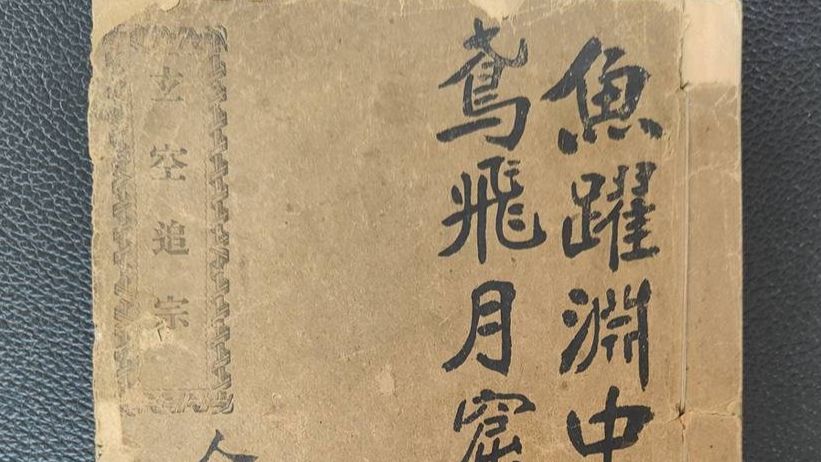 魚躍淵中
鳶飛月窟
玄空追宗